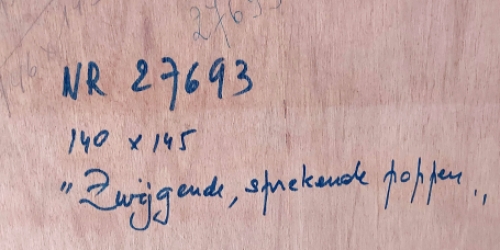 27693
NR 27693
140 x 145
"Zwijgende, sprekende poppen,,